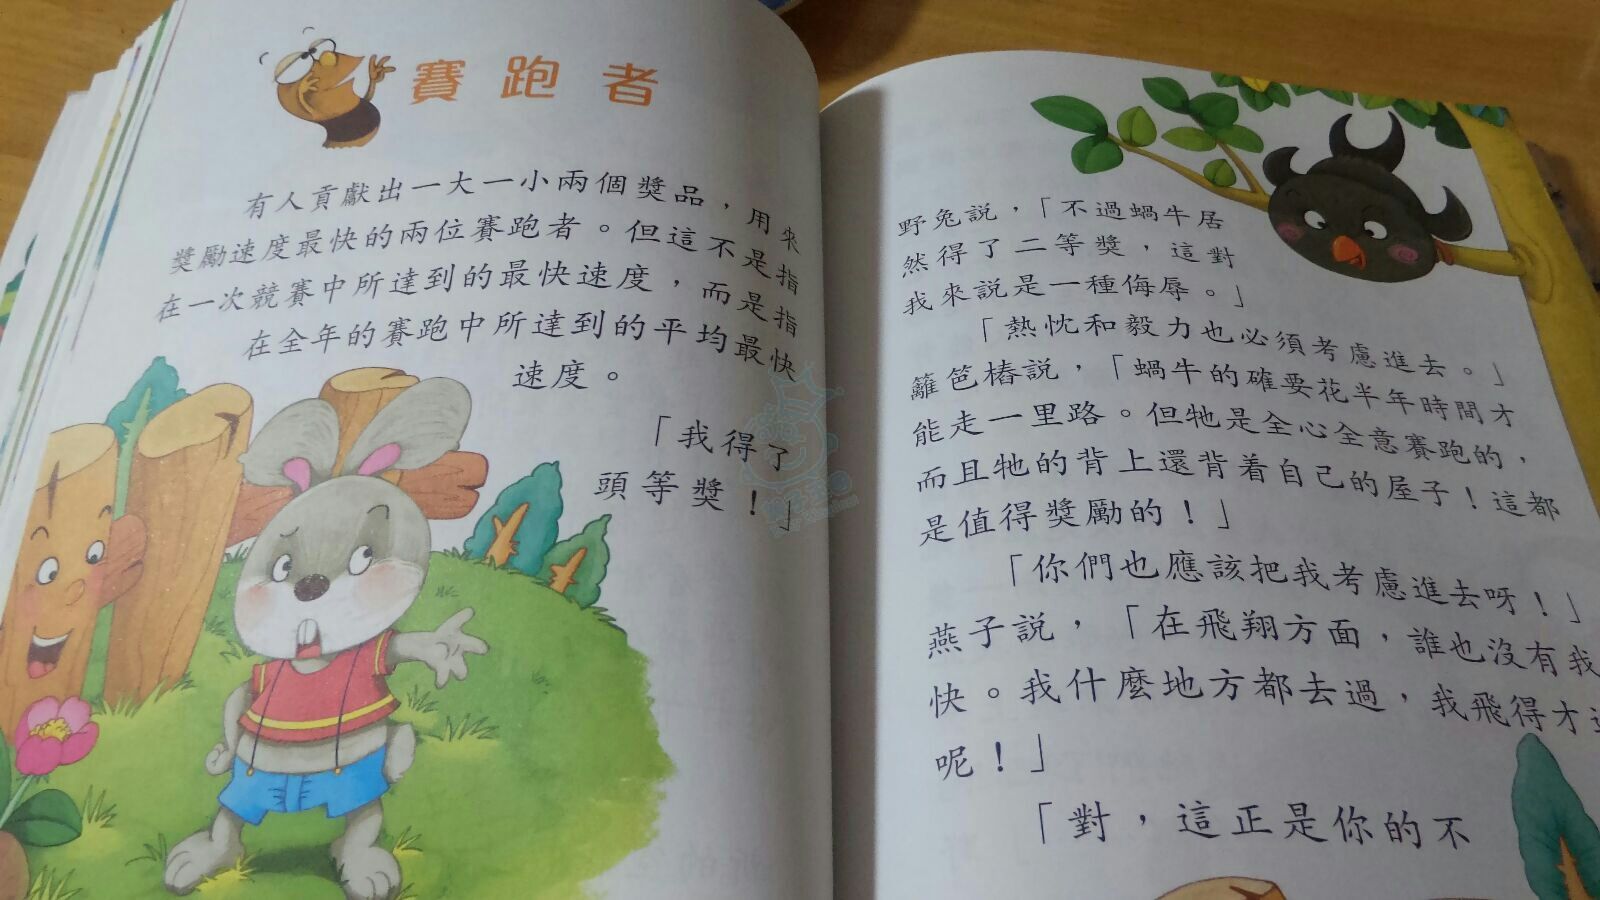 賽跑者
有人貢獻出一大一小兩個獎品，用來
獎勵速度最快的兩位賽跑者。但這不是指
在一次競賽中所達到的最快速度，而是指
在全年的賽跑中所達到的平均最快
速度。
「我得了
頭等獎！」
野兔說，「不過蝸牛居
然得了二等獎，這對
我來說是一種侮辱。」
「熱忱和毅力也必須考慮進去。」
籬笆樁說，「蝸牛的確要花半年時間才
能走一里路。但牠是全心全意賽跑的，
而且牠的背上還背着自己的屋子！這都
是值得獎勵的！」
「你們也應該把我考慮進去呀！」
燕子說，「在飛翔方面，誰也沒有我
快。我什麼地方都去過，我飛得才
呢！」
「對，這正是你的不